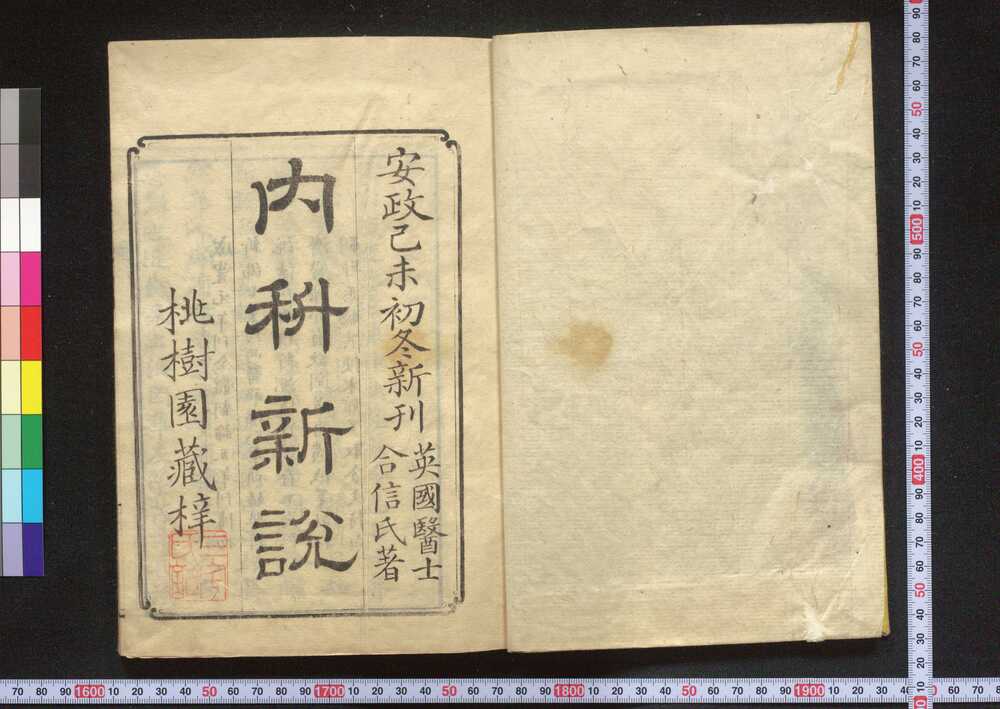 安政己未初冬新刊
英國醫士
合信氏著
內科新說
桃樹園藏梓
90 80 70 60 50 40 30 20 10 500 90 80 70 60 50 40 30 20 10 400 90 80 70 60 50 40 30 20 10
70 80 90 1600 10 20 30 40 50 60 70 80 90 1700 10 20 30 40 50 60 70 80 90 1800 10 20 30 40 50 60 70 80 90 1900 10 20 30 40 50 60 70 80